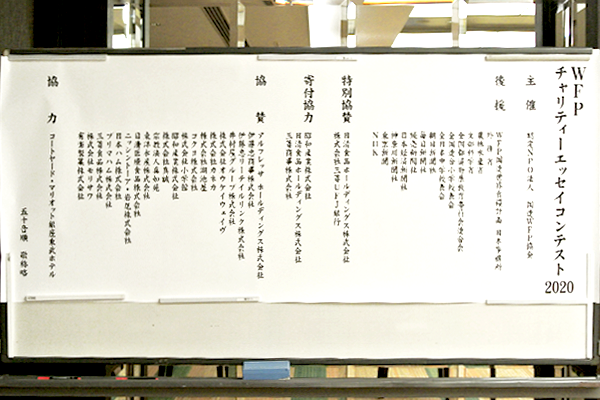 WFP
チャリティーエッセイコンテスト
2020
主催
特定NPO法人 国連WFP協会
後援
WFP国連世界食糧計画 日本事務所
外務省
農林水産省
文部科学省
全国都道府県教育委員会連合会
全国連合小学校長会
全日本中学校長会
朝日新聞社
毎日新聞社
読売新聞社
日本経済新聞社
神奈川新聞社
東京新聞
NHK
特別協賛
日清食品ホールディングス株式会社
株式会社三菱UFJ銀行
寄付協力
昭和産業株式会社
日清食品ホールディングス株式会社
三菱商事株式会社
協賛
アルフレッサ ホールディングス株式会社
伊藤忠商事株式会社
伊藤忠リーテイルリンク株式会社
井村屋グループ株式会社
株式会社オケイウェイヴ
株式会社カネカ
株式会社湖池屋
コクヨ株式会社
株式会社小学館
昭和産業株式会社
株式会社真誠
宗教法人真如苑
東洋水産株式会社
日清医療食品株式会社
ニッシントーア・岩尾株式会社
日本ハム株式会社
プリマハム株式会社
三菱食品株式会社
株式会社モリサワ
有楽製菓株式会社
協力
コートヤード・マリオット銀座東武ホテル
五十音順 敬称略